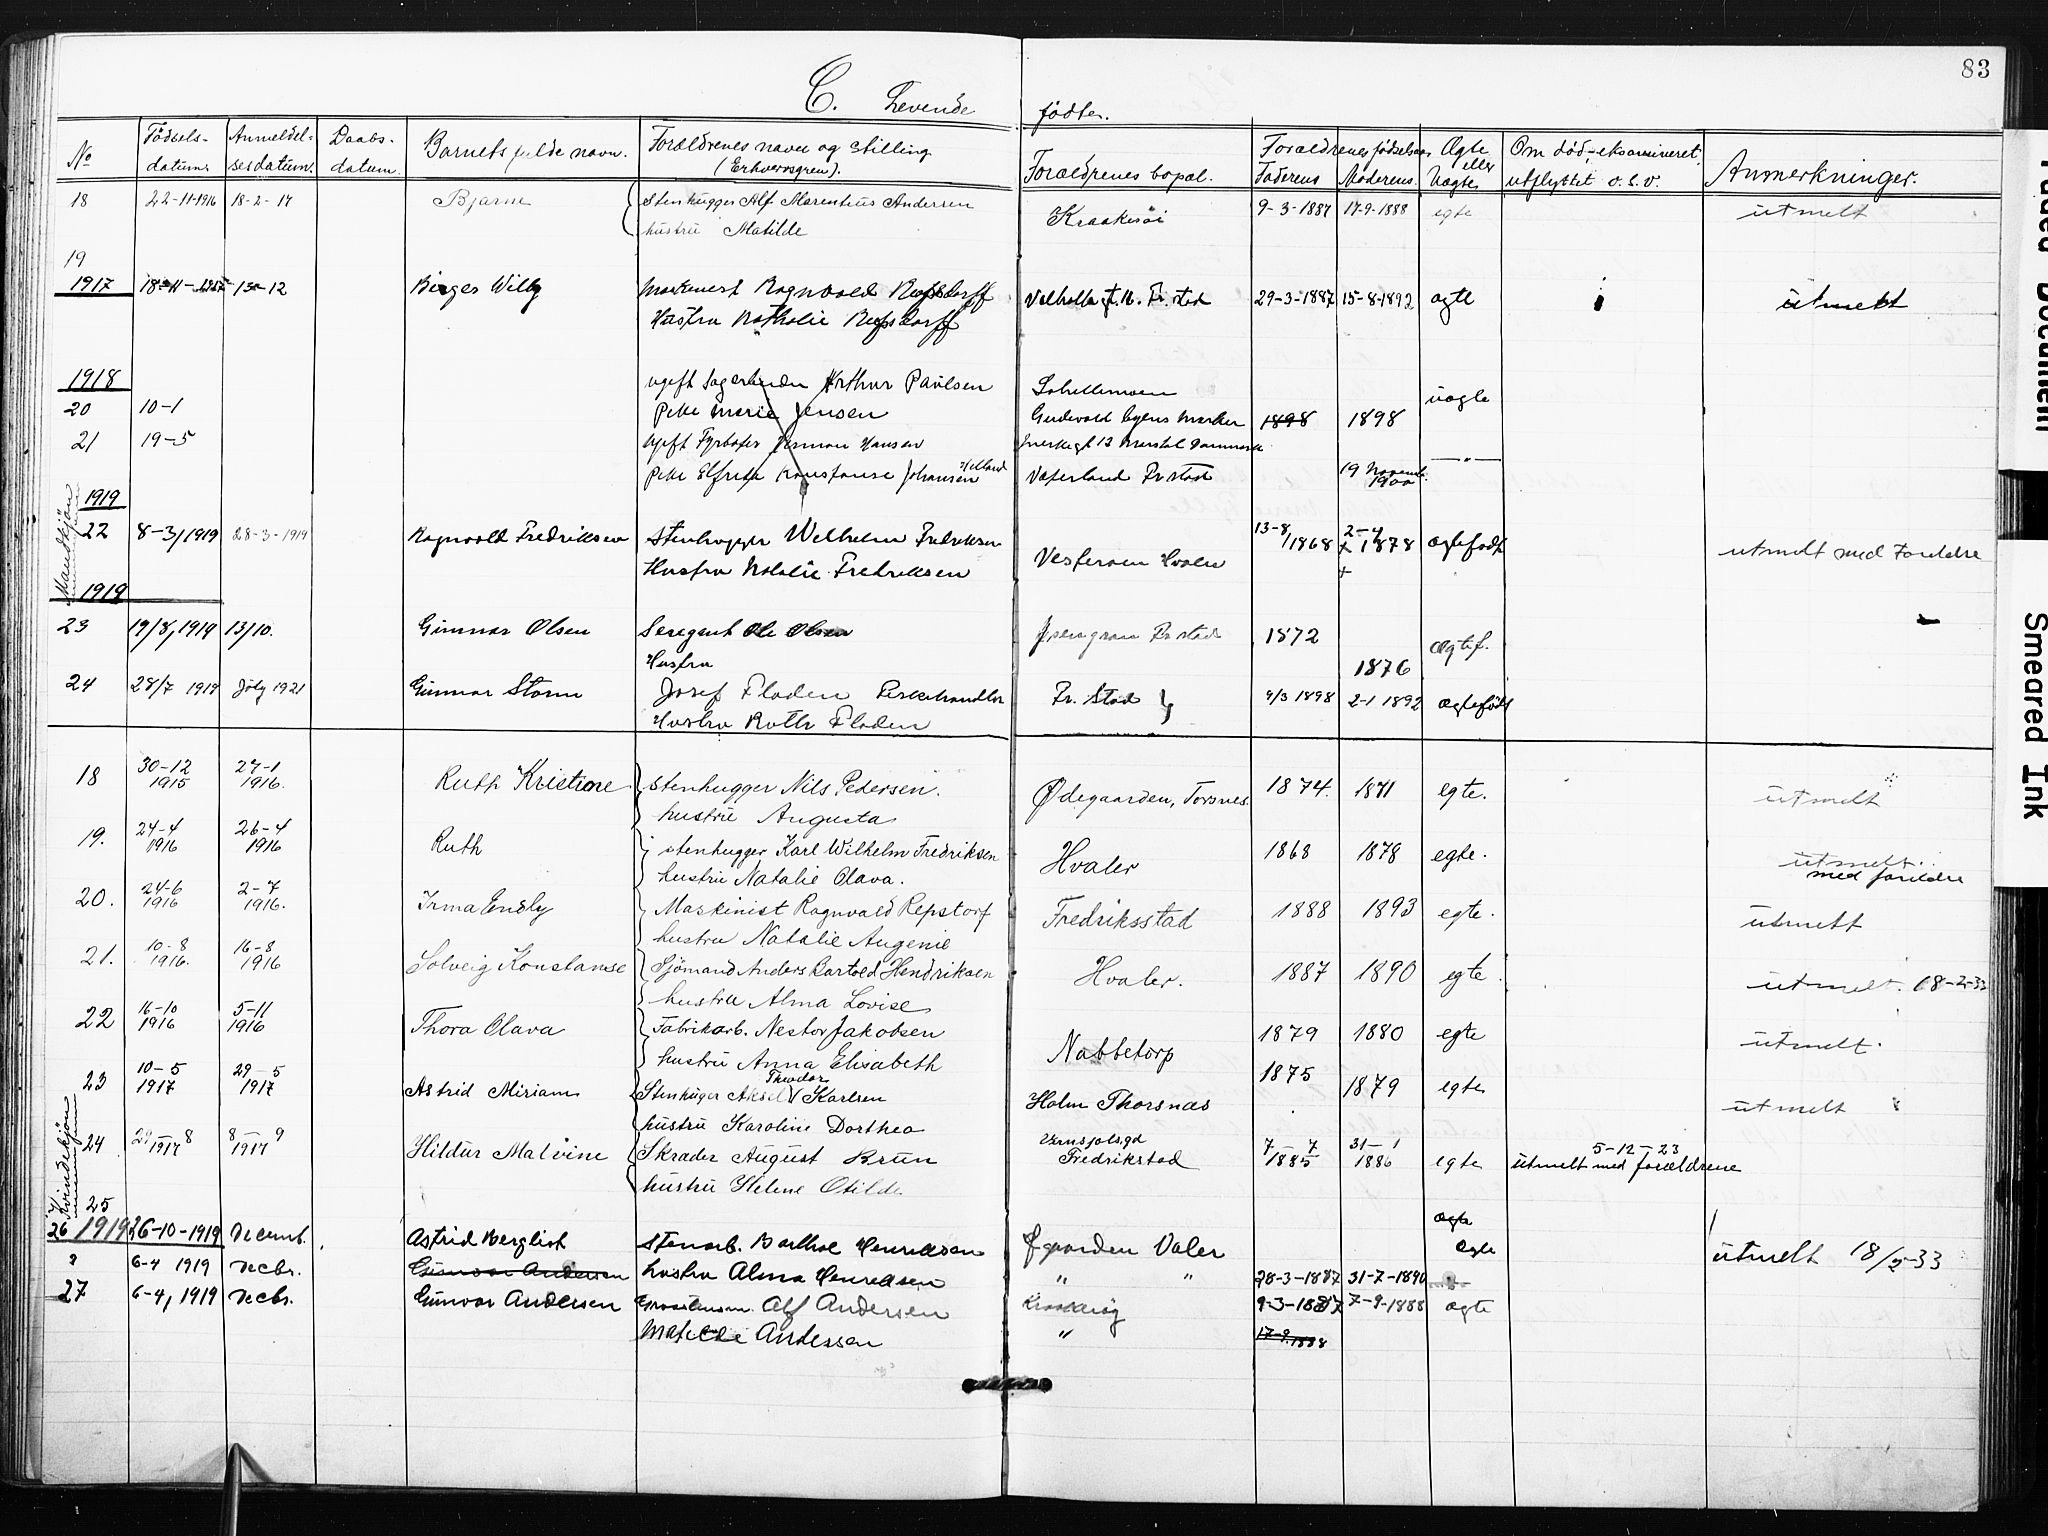 83
C. Levende fødte.
No
Fødsels-datum.
Anmeldel-sesdatum.
Daabs-datum.
Barnets fulde navn.
Forældrenes navn og stilling (Erhvervsgren).
Forældrenes bopæl.
Forældrenes fødselsaar
Faderens Moderens.
Ægte eller Uægte
Om død, eksamineret, utflyttet o.s.v.
Anmerkninger.
18 22-11-1916 18-2-17 Bjarne Stenhugger Alf Marentius Andersen Kraakerøi 9-3-1887 17-9-1888 egte utmelt
hustru Matilde
19
1917 13-12 Birger Willy Ragnvald Fr.stad 29-3-1887 15-8-1892 ægte utmelt
Hustru Nathalie
1918
ugift Arthur Paulsen
20 10-1 Pike Marie Jensen 1898 1898 uægte
21 19-5 ugift Fyrbøter Herman Hansen
Pike Elfrida Konstanse Johansen Vaterland Fr stad 19 Novemb. 1900 — " —
Mandkjøn
1919
22 8-3/1919 28-3-1919 Ragnvald Fredriksen Stenhugger Welhelm Fredriksen Vesterøen Hvaler 13-8/1868 2-4 1878 ægtefødt utmelt med Foreldre
Hustru Natalie Fredriksen
1919
23 19/8, 1919 13/10. Gunnar Olsen Seregent Ole Olsen Fr stad 1872 1876 ægtef.
Hustru
24 28/7 1919 July 1921 Gunnar Storm Josef Fladen Fiskehandler Fr. Stad 9/3 1898 2-1 1892 ægtefødt
Hustru Ruth Fladen
18 30-12 1915 27-1 1916. Ruth Kristine Stenhugger Nils Pedersen. Ødegaarden, Torsnes. 1874. 1871 egte. utmelt
hustru Augusta
19. 24-4 1916 26-4 1916 Ruth stenhugger Karl Wilhelm Fredriksen Hvaler 1868 1878 egte. utmelt. med foreldre
hustru Natalie Olava.
20. 24-6 1916 2-7 1916. Irma Emely Maskinist Ragnvald Repstorf Fredriksstad 1888 1893 egte. utmelt
hustru Natalie Augenie
21. 10-8 1916. 16-8 1916 Solveig Konstanse Sjömand Anders Bartold Hendriksen Hvaler. 1887 1890 egte. utmelt. 18-2-33
hustru Alma Lovise
22 16-10 1916 5-11 1916 Thora Olava Fabrikarb. Nestor Jakobsen Nabbetorp 1879 1880 egte utmelt.
hustru Anna Elisabeth
23 10-5 1917 29-5 1917 Astrid Miriam Stenhuger Aksel Theodor Karlsen Holm Thorsnæs 1875 1879 egte utmelt
hustru Karoline Dorthea
Kvindekjøn
24 29-8 1917 8-9 1917 Hildur Malvine Skräder August Brun Fredrikstad 7-7 1885 31-1 1886 egte 5-12-23 utmelt med forældrene
hustru Helene Otilde
25
26 1919 26-10-1919 Decemb. Astrid Berglivt Stenarb. Barthol Henriksen Valer ægte ægte utmelt 18/2-33
6-4 1919 Decbr. Gunvor Andersen hustru Alma Henriksen " " 28-3-1887 31-7-1890
27 6-4, 1919 Decbr. Gunvor Andersen Alf Andersen Kraakerøy 9-3-1887 7-9-1888 ægte
Matilde Andersen " 17-9.1888
Faded Document
Smeared Ink